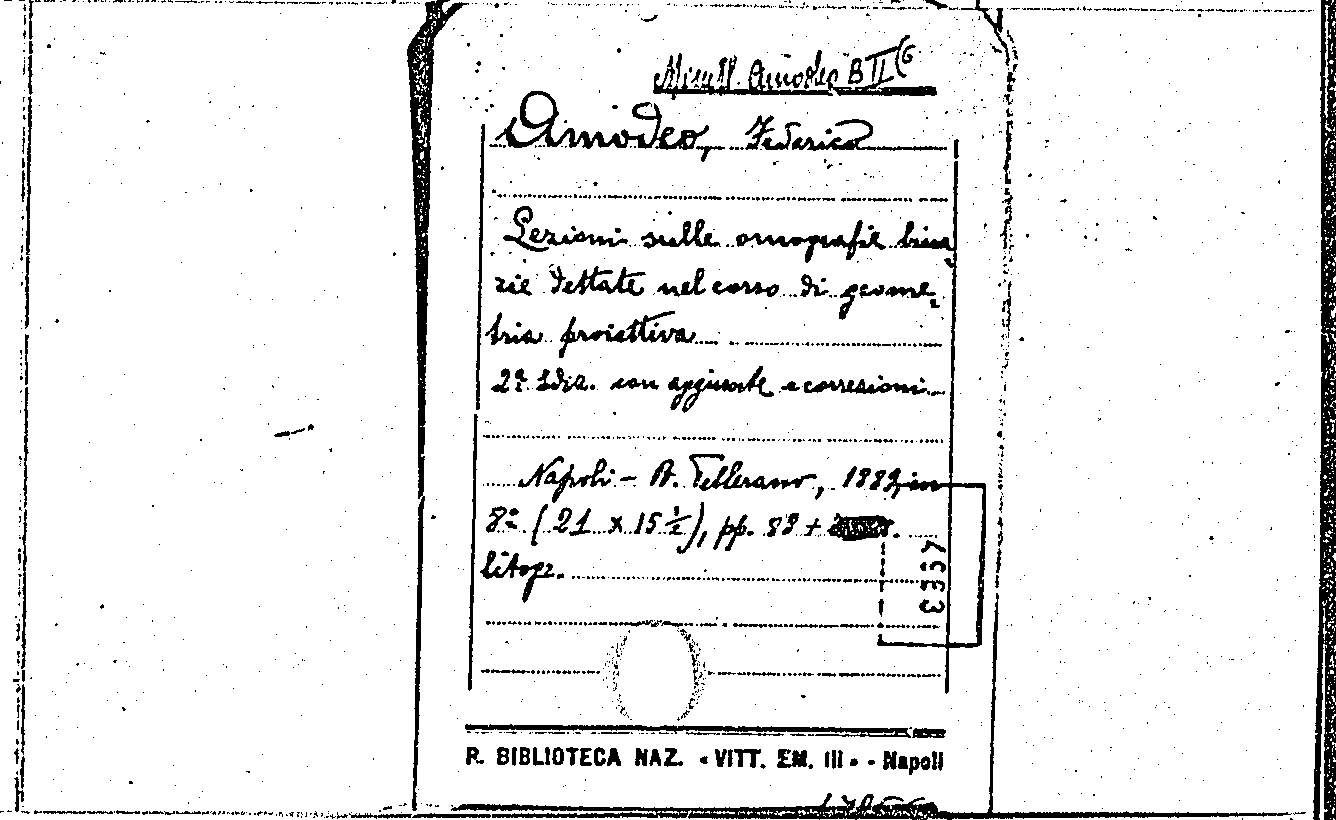 Amodeo B II (6
Amodeo, Federico
Lezioni sulle omografie bina
rie dettate nel corso di geome-
tria proiettiva
2ª Ediz. con aggiunte e correzioni
Napoli - A. Tellerano, 1889, in
8º (21 x 15 ½), pp. 88 +
litogr.
E337
R. BIBLIOTECA NAZ. «VITT. EM. III» - Napoli